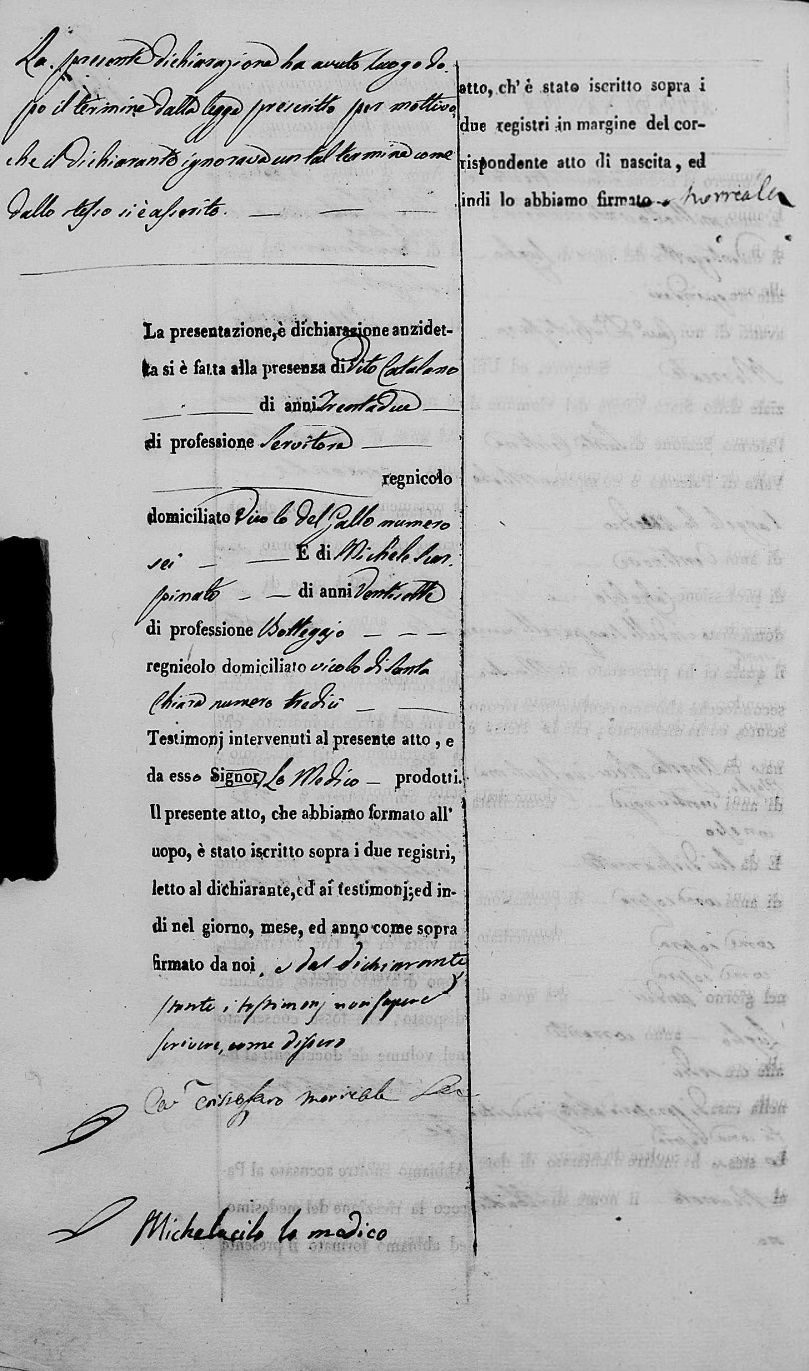 La presente dichiarazione ha avuto luogo do-
po il termine dalla legge prescritto per mottivo,
che il dichiarante ignorava un tal termine come
dallo stesso si è asserito.
La presentazione, è dichiarazione anzidet-
ta si è fatta alla presenza di Vito Catalano
di anni Trentadue
di professione Servitore
regnicolo
domiciliato Vicolo del Gallo numero
sei E di Michele Scar-
pinato di anni Ventisette
di professione Bottegajo
regnicolo domiciliato vicolo di Santa
Chiara numero tredici
Testimonj intervenuti al presente atto, e
da esso Signor Lo Medico prodotti.
Il presente atto, che abbiamo formato all'
uopo, è stato iscritto sopra i due registri,
letto al dichiarante, ed ai testimonj; ed in-
di nel giorno, mese, ed anno come sopra
firmato da noi, e dal dichiarante
stante i testimonj non sapere
scrivere, come dissero
Morreale
Michelacilo lo medico
atto, ch' è stato iscritto sopra i
due registri in margine del cor-
rispondente atto di nascita, ed
indi lo abbiamo firmato Morreale